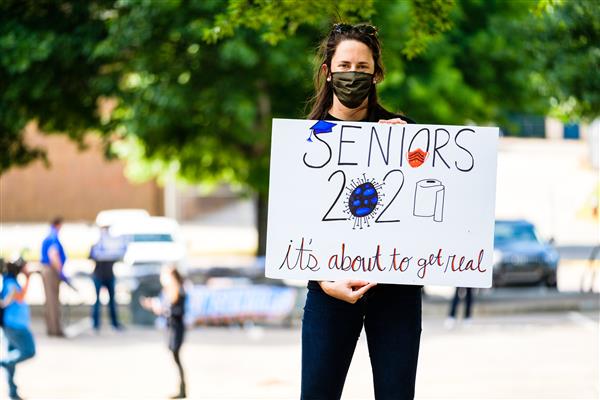 SENIORS
2020
it's about to get real